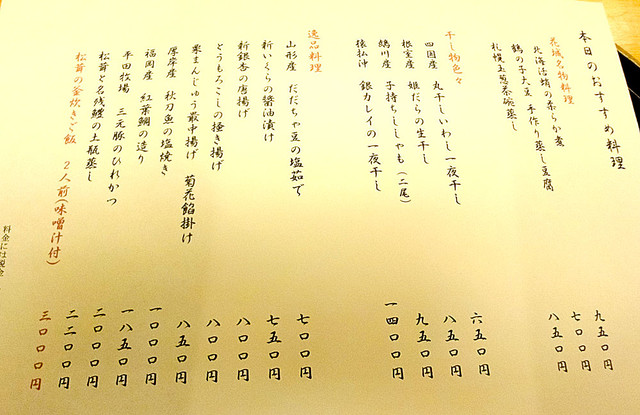 本日のおすすめ料理
花城名物料理
北海活蛸の柔らか煮 九五〇円
鶴の子大豆 手作り蒸し豆腐 七〇〇円
札幌玉葱茶碗蒸し 八五〇円
干し物色々
四国産 丸干しいわし一夜干し 六五〇円
根室産 姫だらの生干し 八五〇円
鵡川産 子持ちししゃも(二尾) 九五〇円
猿払沖 銀カレイの一夜干し 一四〇〇円
逸品料理
山形産 だだちゃ豆の塩茹で 七〇〇円
新いくらの醤油漬け 七五〇円
新銀杏の唐揚げ 八〇〇円
とうもろこしの掻き揚げ 八〇〇円
栗まんじゅう最中揚げ 菊花餡掛け 八五〇円
厚岸産 秋刀魚の塩焼き 一〇〇〇円
福岡産 紅葉鯛の造り 一八五〇円
平田牧場 三元豚のひれかつ 二〇〇〇円
松茸と名残鱧の土瓶蒸し 二二〇〇円
松茸の釜炊きご飯 2人前(味噌汁付) 三〇〇〇円
料金には税金